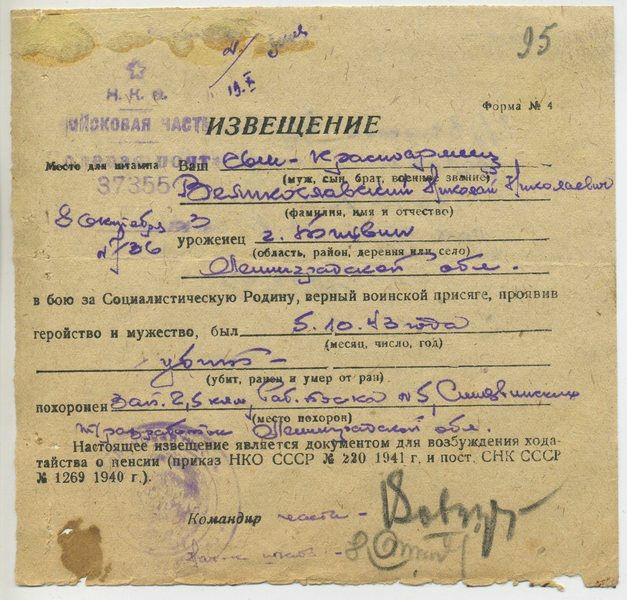 95
19.X
Н.К.О.
ВОЙСКОВАЯ ЧАСТЬ
Полевая почта
37355
Форма № 4
ИЗВЕЩЕНИЕ
Место для штампа
Ваш сын - красноармеец
(муж, сын, брат, военное звание)
Великославский Николай Николаевич
(фамилия, имя и отчество)
8 октября 3
№ 736
уроженец г. Тихвин
(область, район, деревня или село)
Ленинградской обл.
в бою за Социалистическую Родину, верный воинской присяге, проявив
геройство и мужество, был 5.10.43 года
(месяц, число, год)
убит -
(убит, ранен и умер от ран)
похоронен Зап. 2,5 клм. Раб. поселка № 5, Синявинских
(место похорон)
торфразработок Ленинградской обл.
Настоящее извещение является документом для возбуждения хода-
тайства о пенсии (приказ НКО СССР № 220 1941 г. и пост. СНК СССР
№ 1269 1940 г.).
Командир части -